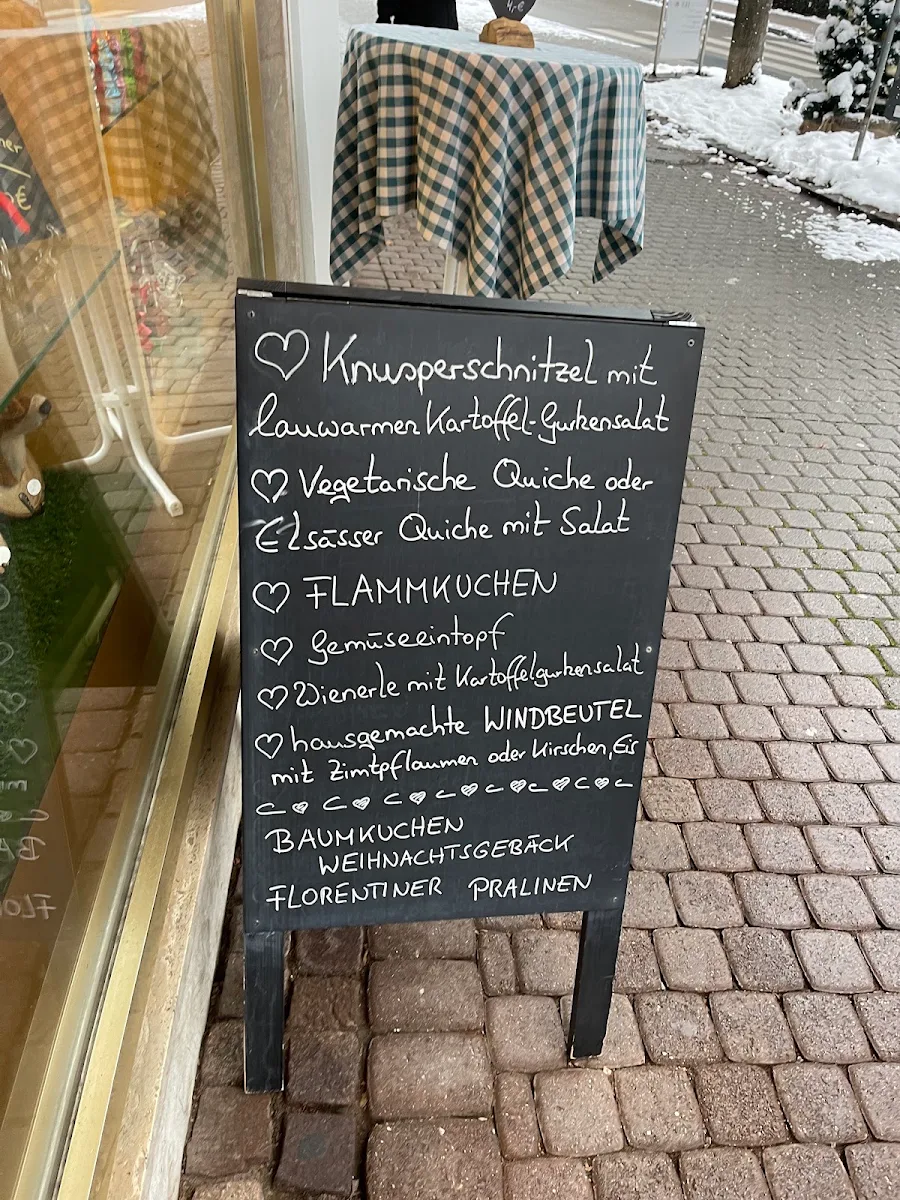 4,-€
ner
€
Knusperschnitzel mit
lauwarmen Kartoffel-Gurkensalat
Vegetarische Quiche oder
Elsässer Quiche mit Salat
FLAMMKUCHEN
Gemüseeintopf
Wienerle mit Kartoffelgurkensalat
hausgemachte WINDBEUTEL
mit Zimtpflaumen oder Kirschen, Eis
BAUMKUCHEN
WEIHNACHTSGEBÄCK
FLORENTINER PRALINEN